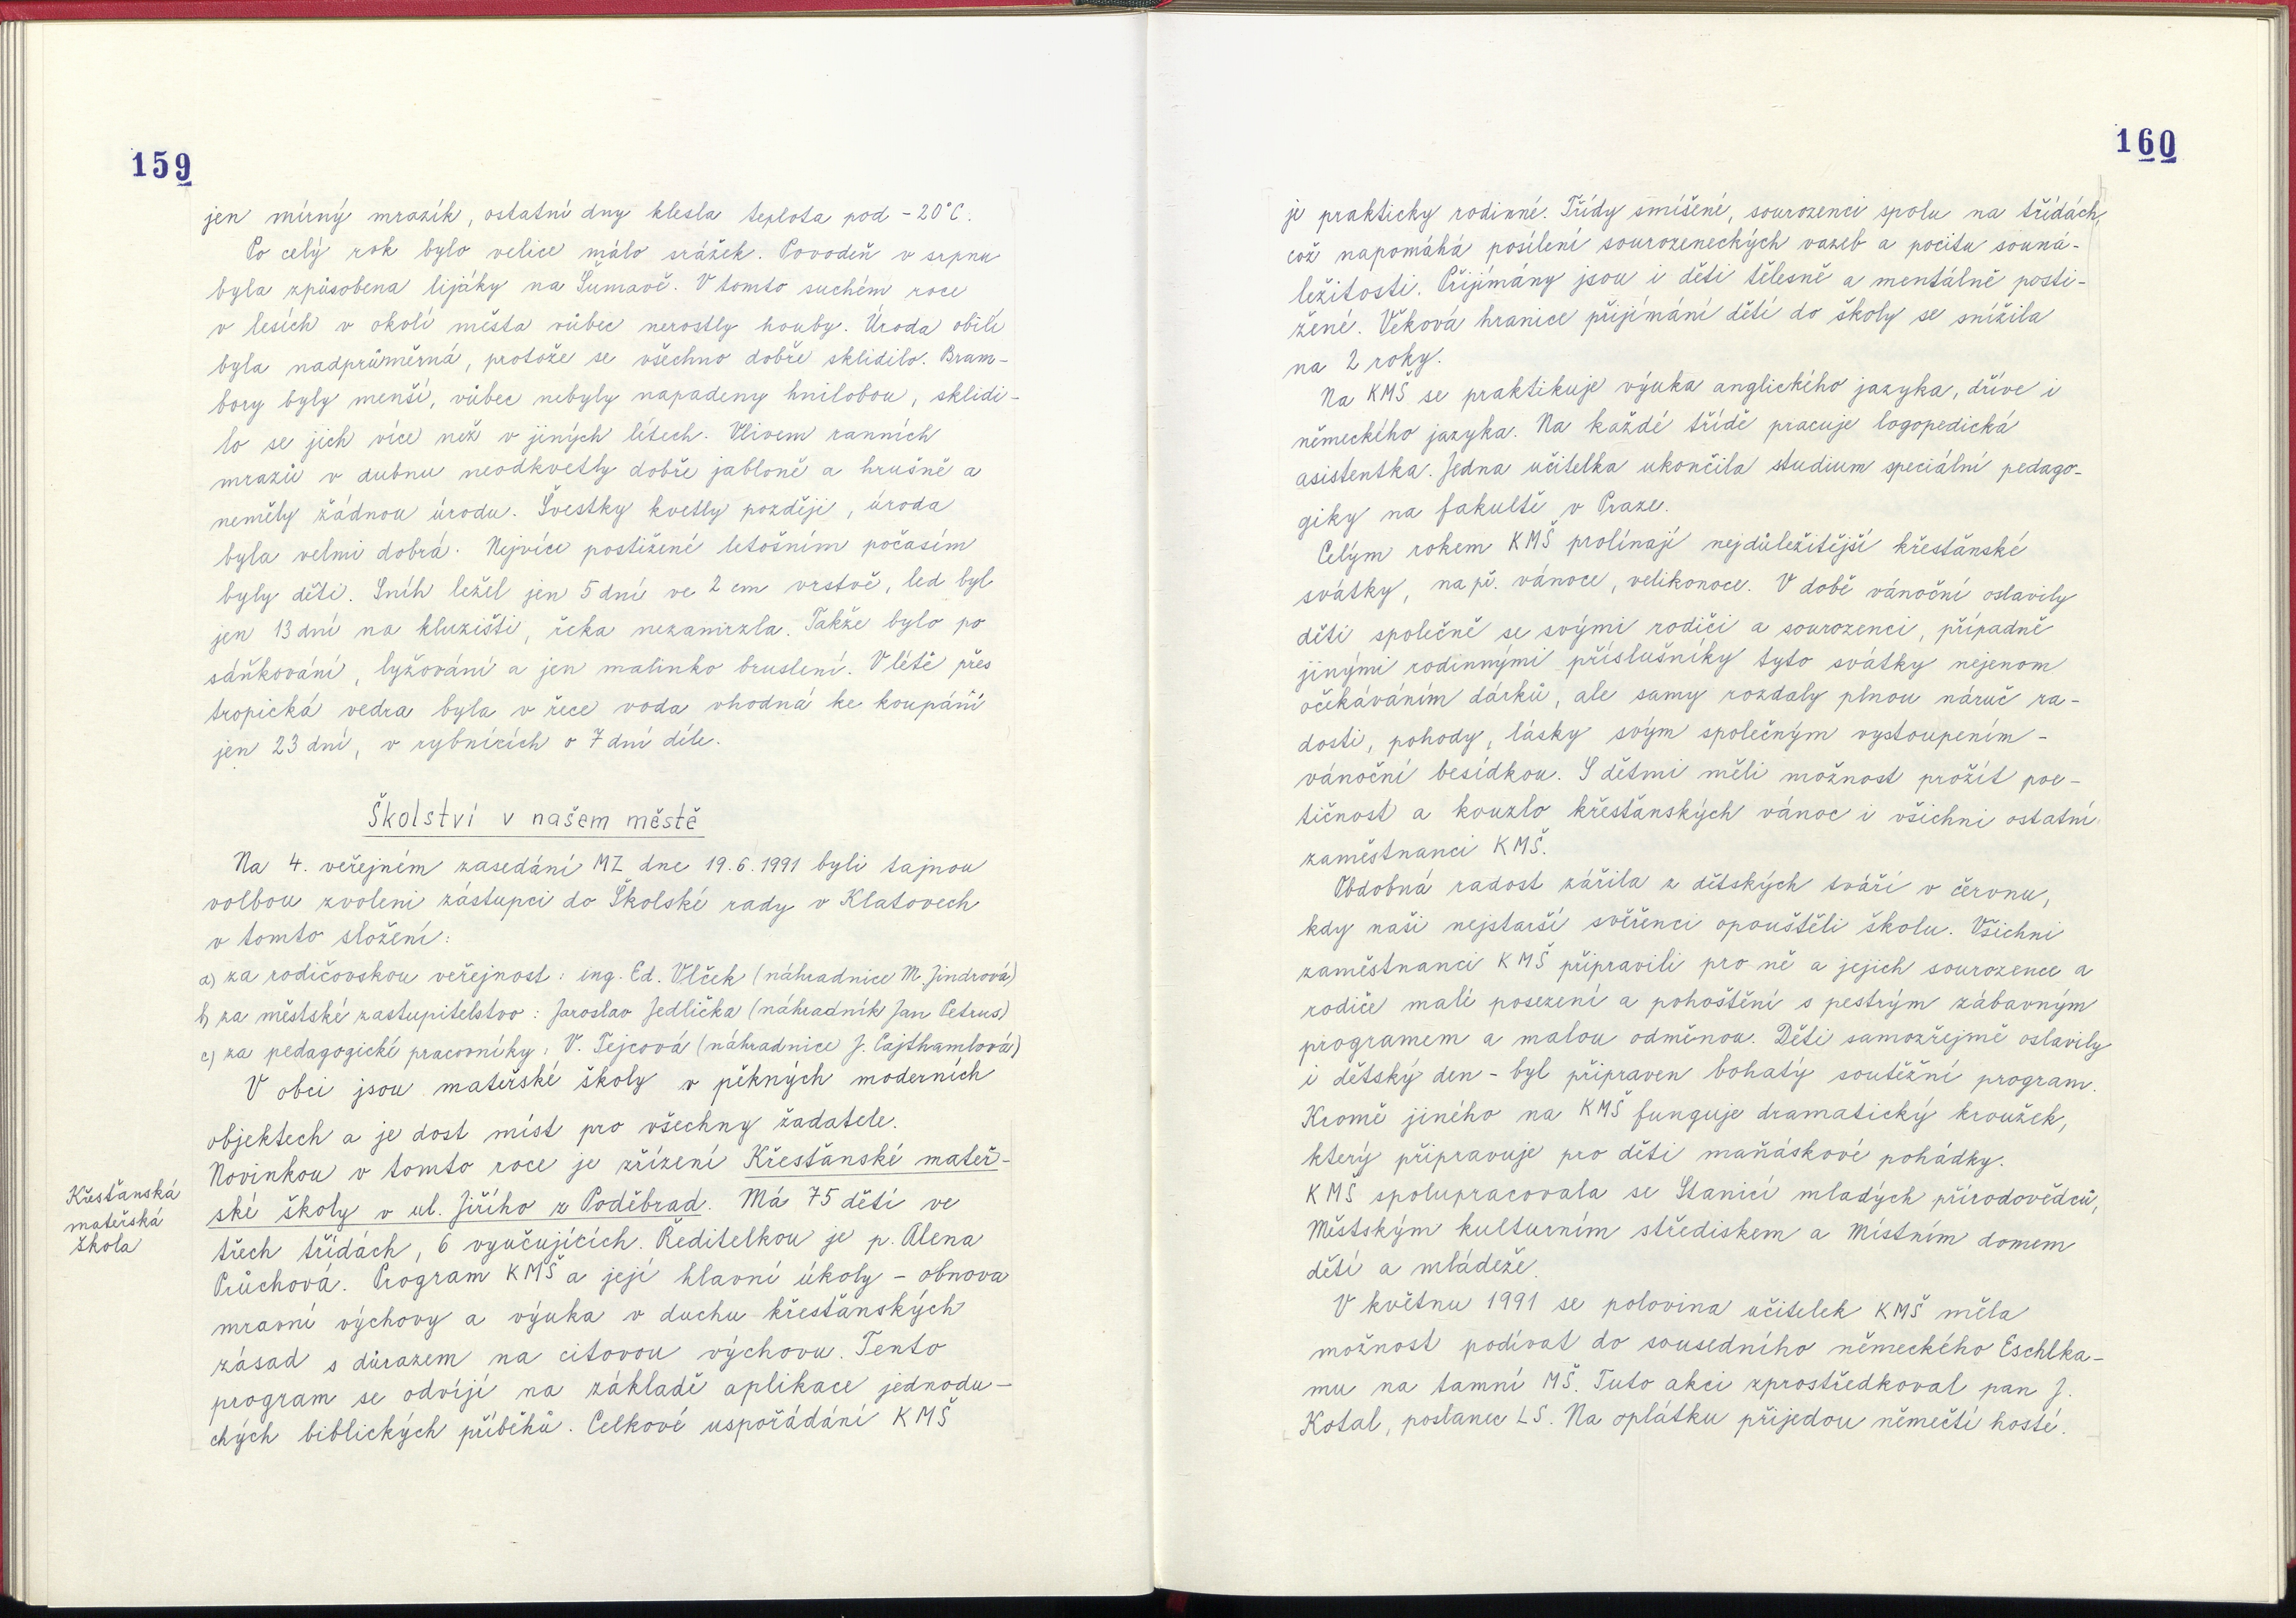 159
jen mírný mrazík, ostatní dny klesla teplota pod -20°C.
Po celý rok bylo velice málo srážek. Povodeň v srpnu
byla způsobena lijáky na Šumavě. V tomto suchém roce
v lesích v okolí města vůbec nerostly houby. Úroda obilí
byla nadprůměrná, protože se všechno dobře sklidilo. Bram-
bory byly menší, vůbec nebyly napadeny hnilobou, sklidi-
lo se jich více než v jiných létech. Vlivem ranních
mrazů v dubnu neodkvetly dobře jabloně a hrušně a
neměly žádnou úrodu. Švestky kvetly později, úroda
byla velmi dobrá. Nejvíce postižené letošním počasím
byly děti. Sníh ležel jen 5 dní ve 2 cm vrstvě, led byl
jen 13 dní na kluzišti, řeka nezamrzla. Takže bylo po
sáňkování, lyžování a jen malinko bruslení. V létě přes
tropická vedra byla v řece voda vhodná ke koupání
jen 23 dní, v rybnících o 7 dní déle.
Školství v našem městě
Na 4. veřejném zasedání MZ dne 19.6.1991 byli tajnou
volbou zvoleni zástupci do Školské rady v Klatovech
v tomto složení:
a) za rodičovskou veřejnost: ing. Ed. Vlček (náhradnice M. Jindrová)
b) za městské zastupitelstvo: Jaroslav Jedlička (náhradník Jan Petrus)
c) za pedagogické pracovníky: V. Tejcová (náhradnice J. Cajthamlová)
V obci jsou mateřské školy v pěkných moderních
objektech a je dost míst pro všechny žadatele.
Novinkou v tomto roce je zřízení Křesťanské mateř-
ské školy v ul. Jiřího z Poděbrad. Má 75 dětí ve
třech třídách, 6 vyučujících. Ředitelkou je p. Alena
Průchová. Program KMŠ a její hlavní úkoly - obnova
mravní výchovy a výuka v duchu křesťanských
zásad s důrazem na citovou výchovu. Tento
program se odvíjí na základě aplikace jednodu-
chých biblických příběhů. Celkové uspořádání KMŠ
Křesťanská
mateřská
škola
160
je prakticky rodinné. Třídy smíšené, sourozenci spolu na třídách,
což napomáhá posílení sourozeneckých vazeb a pocitu souná-
ležitosti. Přijímány jsou i děti tělesně a mentálně posti-
žené. Věková hranice přijímání dětí do školy se snížila
na 2 roky.
Na KMŠ se praktikuje výuka anglického jazyka, dříve i
německého jazyka. Na každé třídě pracuje logopedická
asistentka. Jedna učitelka ukončila studium speciální pedago-
giky na fakultě v Praze.
Celým rokem KMŠ prolínají nejdůležitější křesťanské
svátky, např. vánoce, velikonoce. V době vánoční oslavily
děti společně se svými rodiči a sourozenci, případně
jinými rodinnými příslušníky tyto svátky nejenom
očekáváním dárků, ale samy rozdaly plnou náruč ra-
dosti, pohody, lásky svým společným vystoupením -
vánoční besídkou. S dětmi měli možnost prožít poe-
tičnost a kouzlo křesťanských vánoc i všichni ostatní
zaměstnanci KMŠ.
Obdobná radost zářila z dětských tváří v červnu,
kdy naši nejstarší svěřenci opouštěli školu. Všichni
zaměstnanci KMŠ připravili pro ně a jejich sourozence a
rodiče malé posezení a pohoštění s pestrým zábavným
programem a malou odměnou. Děti samozřejmě oslavily
i dětský den - byl připraven bohatý soutěžní program.
Kromě jiného na KMŠ funguje dramatický kroužek,
který připravuje pro děti maňáskové pohádky.
KMŠ spolupracovala se Stanicí mladých přírodovědců,
Městským kulturním střediskem a Místním domem
dětí a mládeže.
V květnu 1991 se polovina učitelek KMŠ měla
možnost podívat do sousedního německého Eschlka-
mu na tamní MŠ. Tuto akci zprostředkoval pan J.
Kotal, poslanec LS. Na oplátku přijedou němečtí hosté.